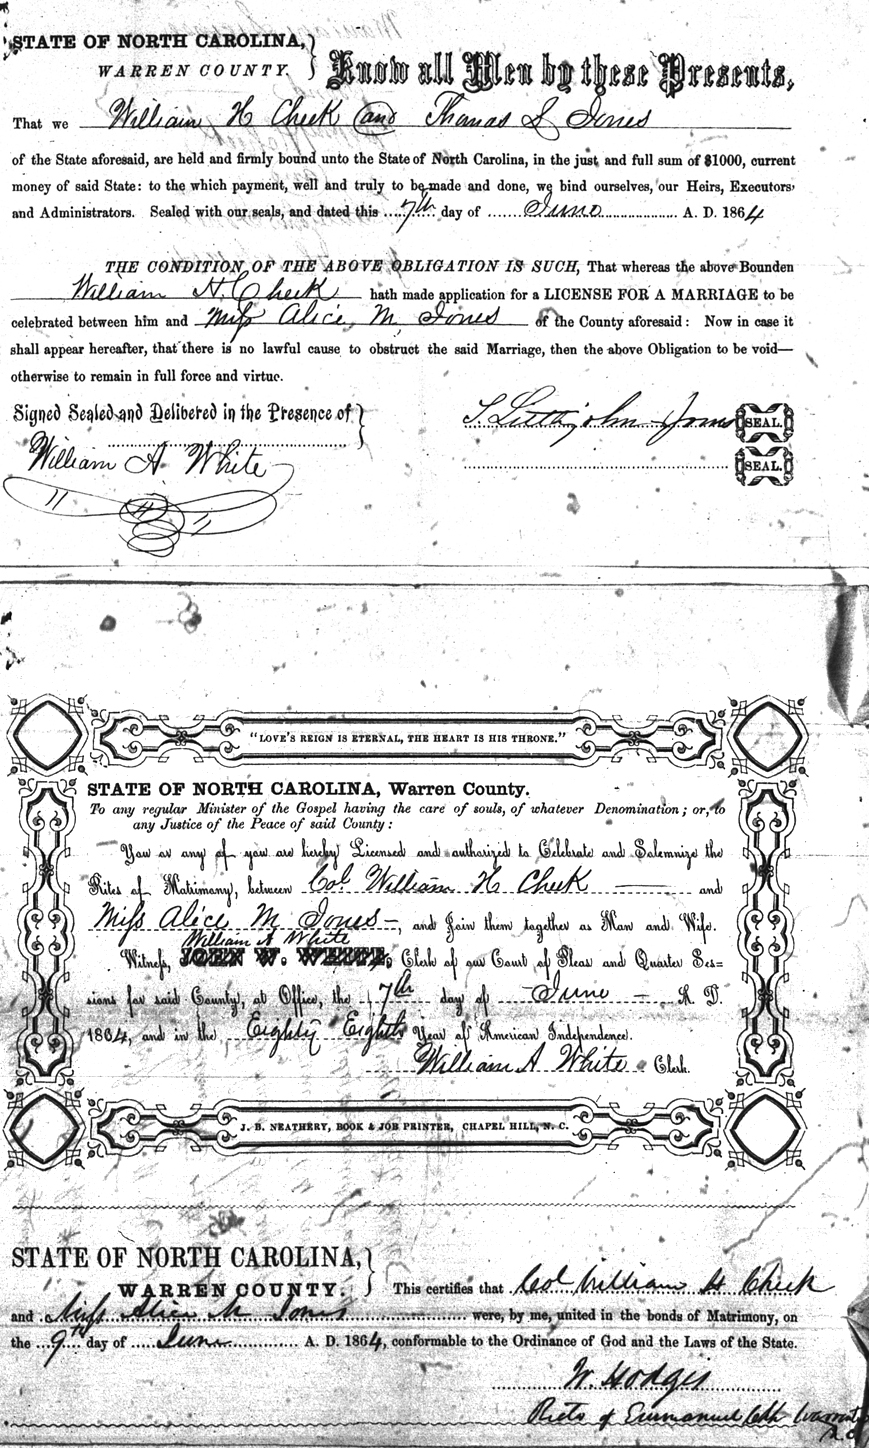 STATE OF NORTH CAROLINA,
WARREN COUNTY.
Know all Men by these Presents,
That we William H Cheek and Thomas L Jones
of the State aforesaid, are held and firmly bound unto the State of North Carolina, in the just and full sum of $1000, current
money of said State: to the which payment, well and truly to be made and done, we bind ourselves, our Heirs, Executors,
and Administrators. Sealed with our seals, and dated this 7th day of June A. D. 1864
THE CONDITION OF THE ABOVE OBLIGATION IS SUCH, That whereas the above Bounden
William H. Cheek hath made application for a LICENSE FOR A MARRIAGE to be
celebrated between him and Miss Alice M Jones of the County aforesaid: Now in case it
shall appear hereafter, that there is no lawful cause to obstruct the said Marriage, then the above Obligation to be void—
otherwise to remain in full force and virtue.
Signed Sealed and Delibered in the Presence of
Jones SEAL.
William A. White
SEAL.
"LOVE'S REIGN IS ETERNAL, THE HEART IS HIS THRONE."
STATE OF NORTH CAROLINA, Warren County.
To any regular Minister of the Gospel having the care of souls, of whatever Denomination; or, to
any Justice of the Peace of said County:
You or any of you are hereby Licensed and authorized to Celebrate and Solemnize the
Rites of Matrimony, between Col William H Cheek and
Miss Alice M Jones, and Join them together as Man and Wife.
William A White
Witness, JOHN W. WHITE, Clerk of our Court of Pleas and Quarter Ses=
sions for said County, at Office, the 7th day of June A. D.
1864, and in the Eighty Eighth Year of American Independence.
William A White Clerk.
J. B. NEATHERY, BOOK & JOB PRINTER, CHAPEL HILL, N. C.
STATE OF NORTH CAROLINA,
WARREN COUNTY.
This certifies that Col William H Cheek
and Miss Alice M Jones were, by me, united in the bonds of Matrimony, on
the 9th day of June A. D. 1864, conformable to the Ordinance of God and the Laws of the State.
W. Hodges
of Emmanuel